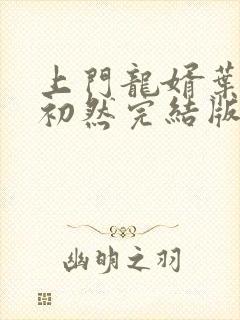 上門龍婿葉
初然完結版
幽明之羽